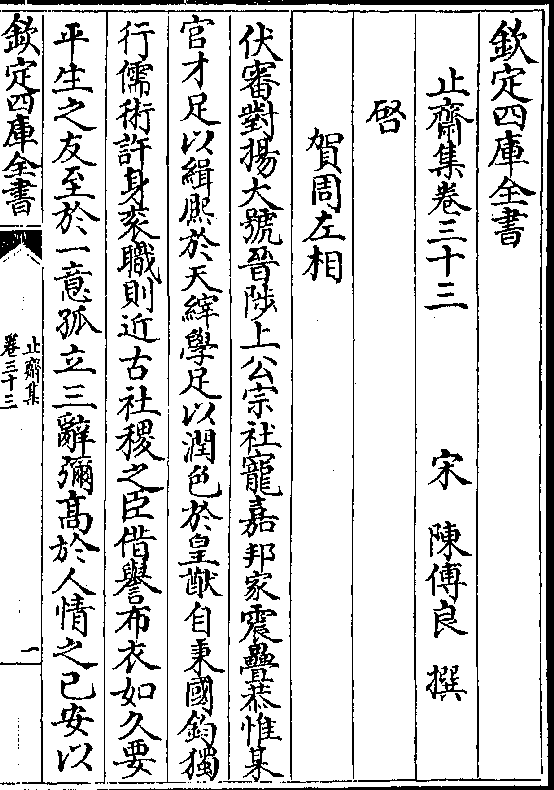 欽定四庫全書
止齋集卷三十三　宋　陳傅良　撰
啓
賀周左相
伏審對揚大號晉陟上公宗社寵嘉邦家震疊恭惟某
官才足以緝熈於天縡學足以潤色於皇猷自秉國鈞獨
行儒術許身衮職則近古社稷之臣借譽布衣如久要
平生之友至於一意孤立三辭彌髙於人情之已安以
欽定四庫全書
止齋集
卷三十三
一